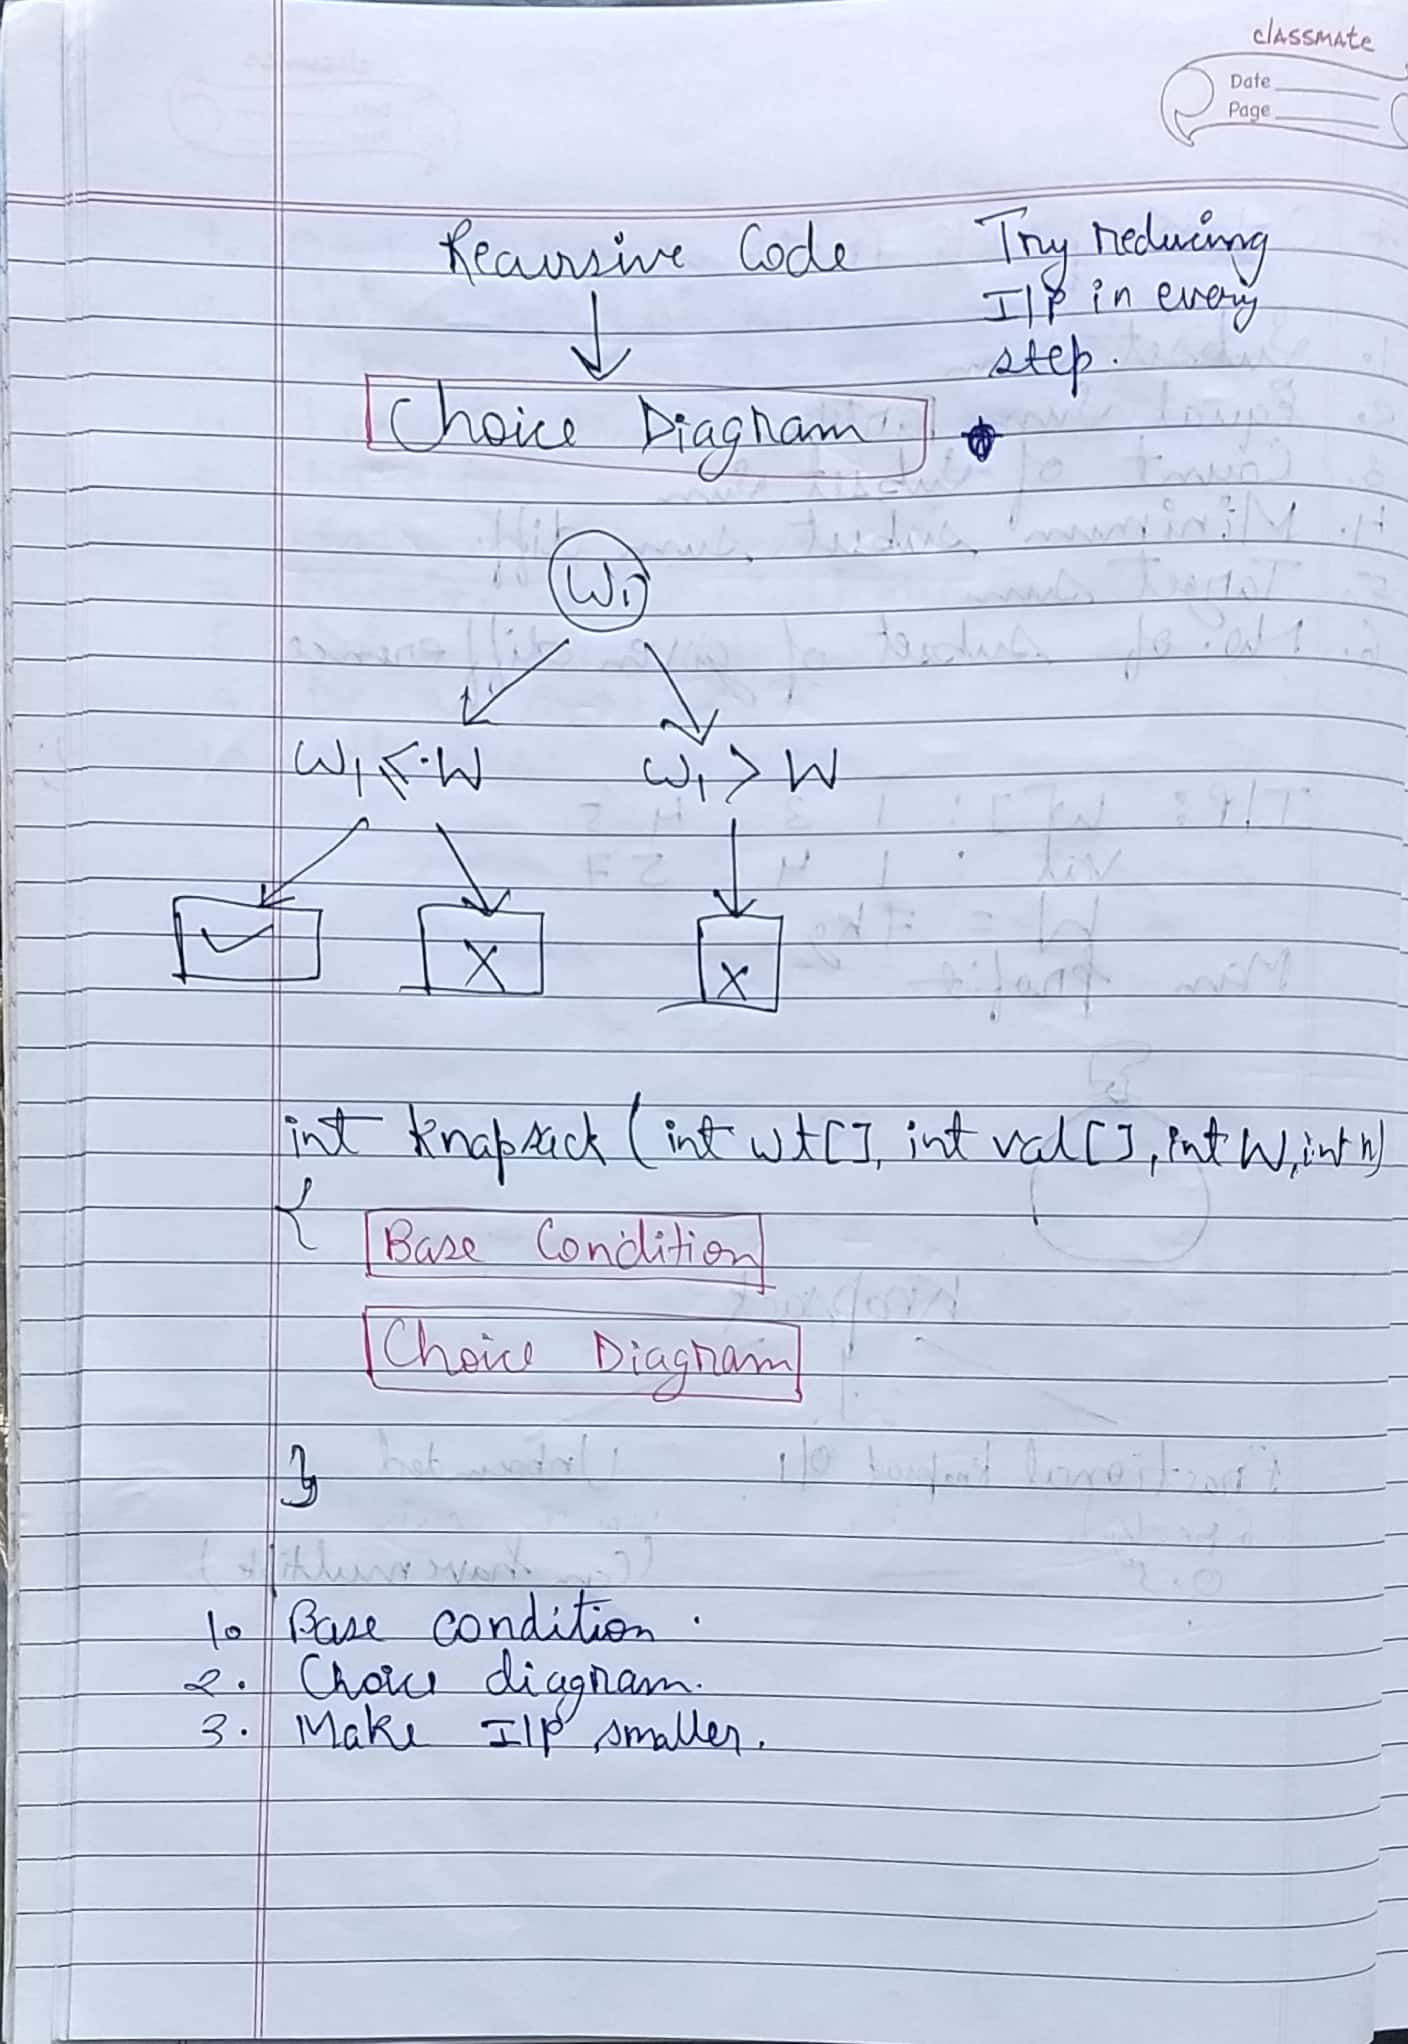 classmate
Date
Page
Recursive Code
Try reducing
I/P in every
step.
Choice Diagram
W1
W1 ≤ W
W1 > W
✓ X X
int knapsack (int wt[], int val[], int W, int n)
{
Base Condition
Choice Diagram
}
1. Base condition.
2. Choice diagram.
3. Make I/P smaller.